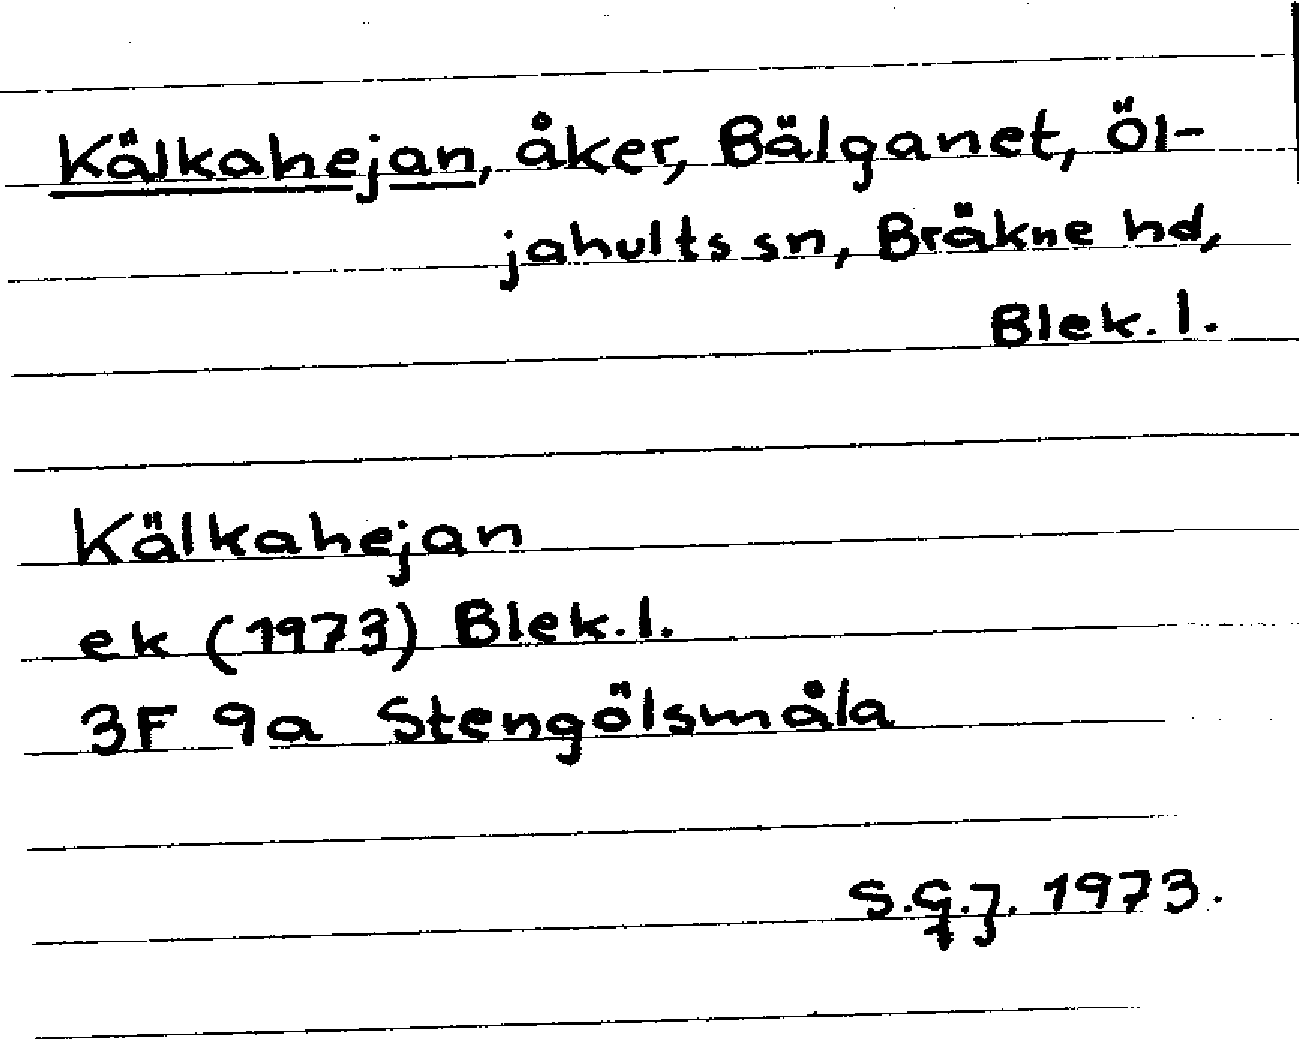 Kälkahejan, åker, Bälganet, Öl-
jahults sn, Bräkne hd,
Blek. l.
Kälkahejan
ek (1973) Blek. l.
3F 9a Stengölsmåla
S.G.J. 1973.